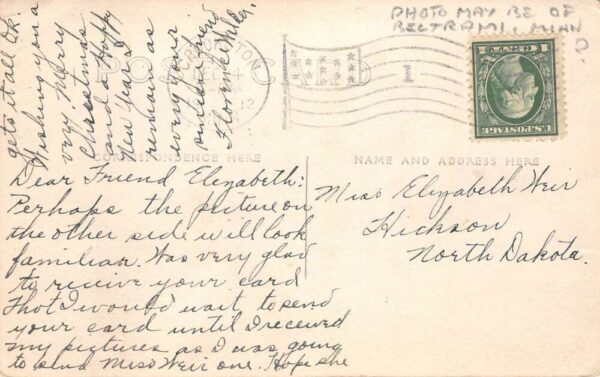 PHOTO MAY BE OF
BELTRAMI, MINN
?
DEC
12
1
U.S. POSTAGE
CORRESPONDENCE HERE
NAME AND ADDRESS HERE
Dear Friend Elizabeth:
Perhaps the picture on
the other side will look
familiar. Was very glad
to recive your card
Thot I would wait to send
your card until I received
my pictures as I was going
to send Miss Weir one. Hope she
gets it all O.K.
Wishing you a
very Merry
Christmas
and a Happy
New Year I
remain as
ever your
sincere friend
Florence
Miss Elizabeth Weir
Hickson
North Dakota.